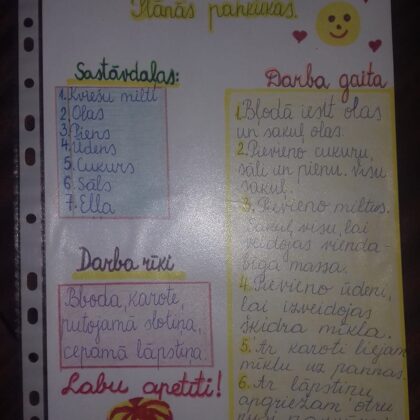 Plānās pankūkas.
Sastāvdaļas:
1. Kviešu milti
2. Olas
3. Piens
4. Ūdens
5. Cukurs
6. Sāls
7. Eļļa
Darba rīki
Bļoda, karote,
putojamā slotiņa,
cepamā lāpstiņa.
Labu apetīti!
Darba gaita
1. Bļodā iesit olas
un sakuļ olas.
2. Pievieno cukuru,
sāli un pienu. visu
sakuļ.
3. Pievieno miltus.
Sakuļ visu, lai
veidojas vienda-
bīga massa.
4. Pievieno ūdeni,
lai izveidojas
šķidra mīkla.
5. Ar karoti lejam
mīklu uz pannas.
6. Ar lāpstiņu
apgriežam otru